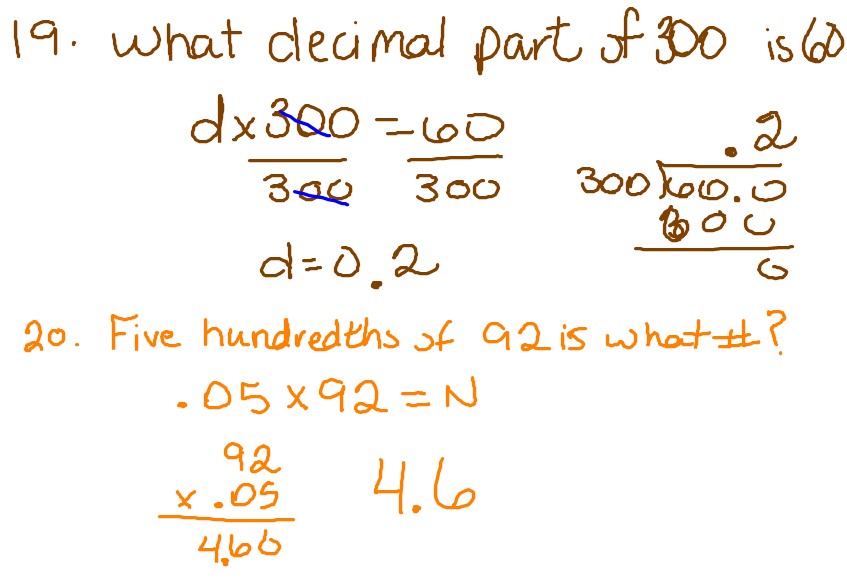 19. What decimal part of 300 is 60
d x 300 = 60
300 300
d = 0.2
.2
300 60.0
600
0
20. Five hundredths of 92 is what #?
.05 x 92 = N
92
x .05
4.60
4.6